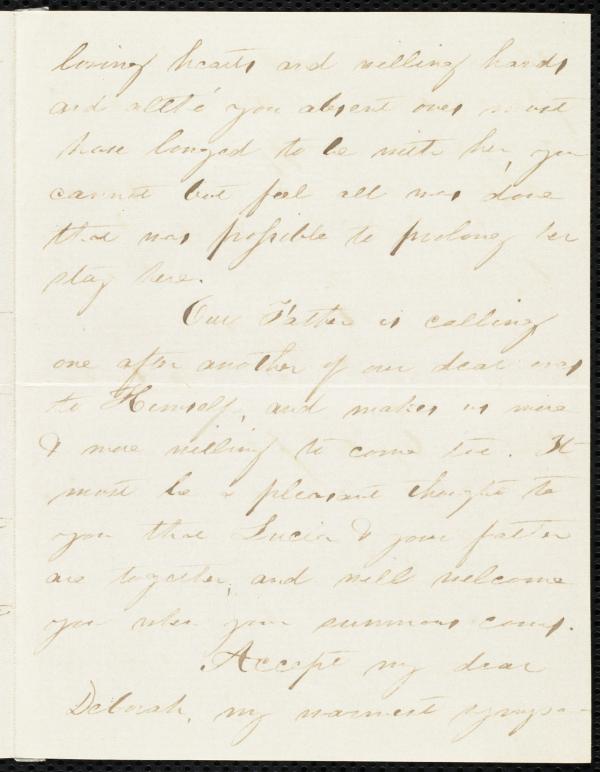 loving hearts and willing hands
and altho' you absent ones must
have longed to be with her, you
cannot but feel all was done
that was possible to prolong her
stay here.
Our Father is calling
one after another of our dear ones
to Himself, and makes us more
& more willing to come too. It
must be a pleasant thought to
you that Lucia & your father
are together, and will welcome
you when your summons comes.
Accept my dear
Deborah, my warmest sympa-